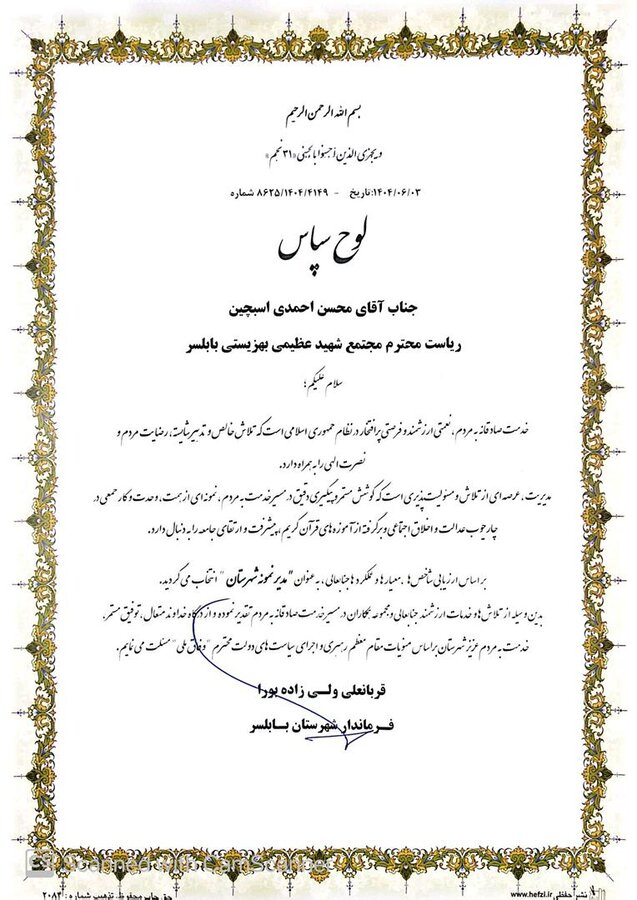 بسم الله الرحمن الرحیم
ویجزی الذین أحسنوا بالحسنی «۳۱ نجم»
۱۴۰۴/۰۶/۰۳:تاریخ - ۸۶۲۵/۱۴۰۴/۴۱۴۹ شماره
لوح سپاس
جناب آقای محسن احمدی اسبچین
ریاست محترم مجتمع شهید عظیمی بهزیستی بابلسر
سلام علیکم؛
خدمت صادقانه به مردم، نعمتی ارزشمند و فرصتی پرافتخار در نظام جمهوری اسلامی است که تلاش خالص و تدبیر شایسته، رضایت مردم و
نصرت الهی را به همراه دارد.
مدیریت، عرصه ای از تلاش و مسئولیت پذیری است که کوشش مستمر و پیگیری دقیق در مسیر خدمت به مردم، نمونه ای از همت، وحدت و کار جمعی در
چارچوب عدالت و اخلاق اجتماعی و برگرفته از آموزه های قرآن کریم، پیشرفت و ارتقای جامعه را به دنبال دارد.
بر اساس ارزیابی شاخص ها، معیارها و عملکردها جنابعالی، به عنوان "مدیر نمونه شهرستان" انتخاب می گردید.
بدین وسیله از تلاش ها و خدمات ارزشمند جنابعالی و مجموعه همکاران در مسیر خدمت صادقانه به مردم تقدیر نموده و از درگاه خداوند متعال، توفیق مستمر،
خدمت به مردم عزیز شهرستان بر اساس منویات مقام معظم رهبری و اجرای سیاست های دولت محترم "وفاق ملی" مسئلت می نمایم.
قربانعلی ولی زاده پورا
فرماندار شهرستان بابلسر
Scanned with CamScanner
نشر حفظی www.hefzi.ir
حق چاپ محفوظ. تذهیب شماره: ۲۰۸۳